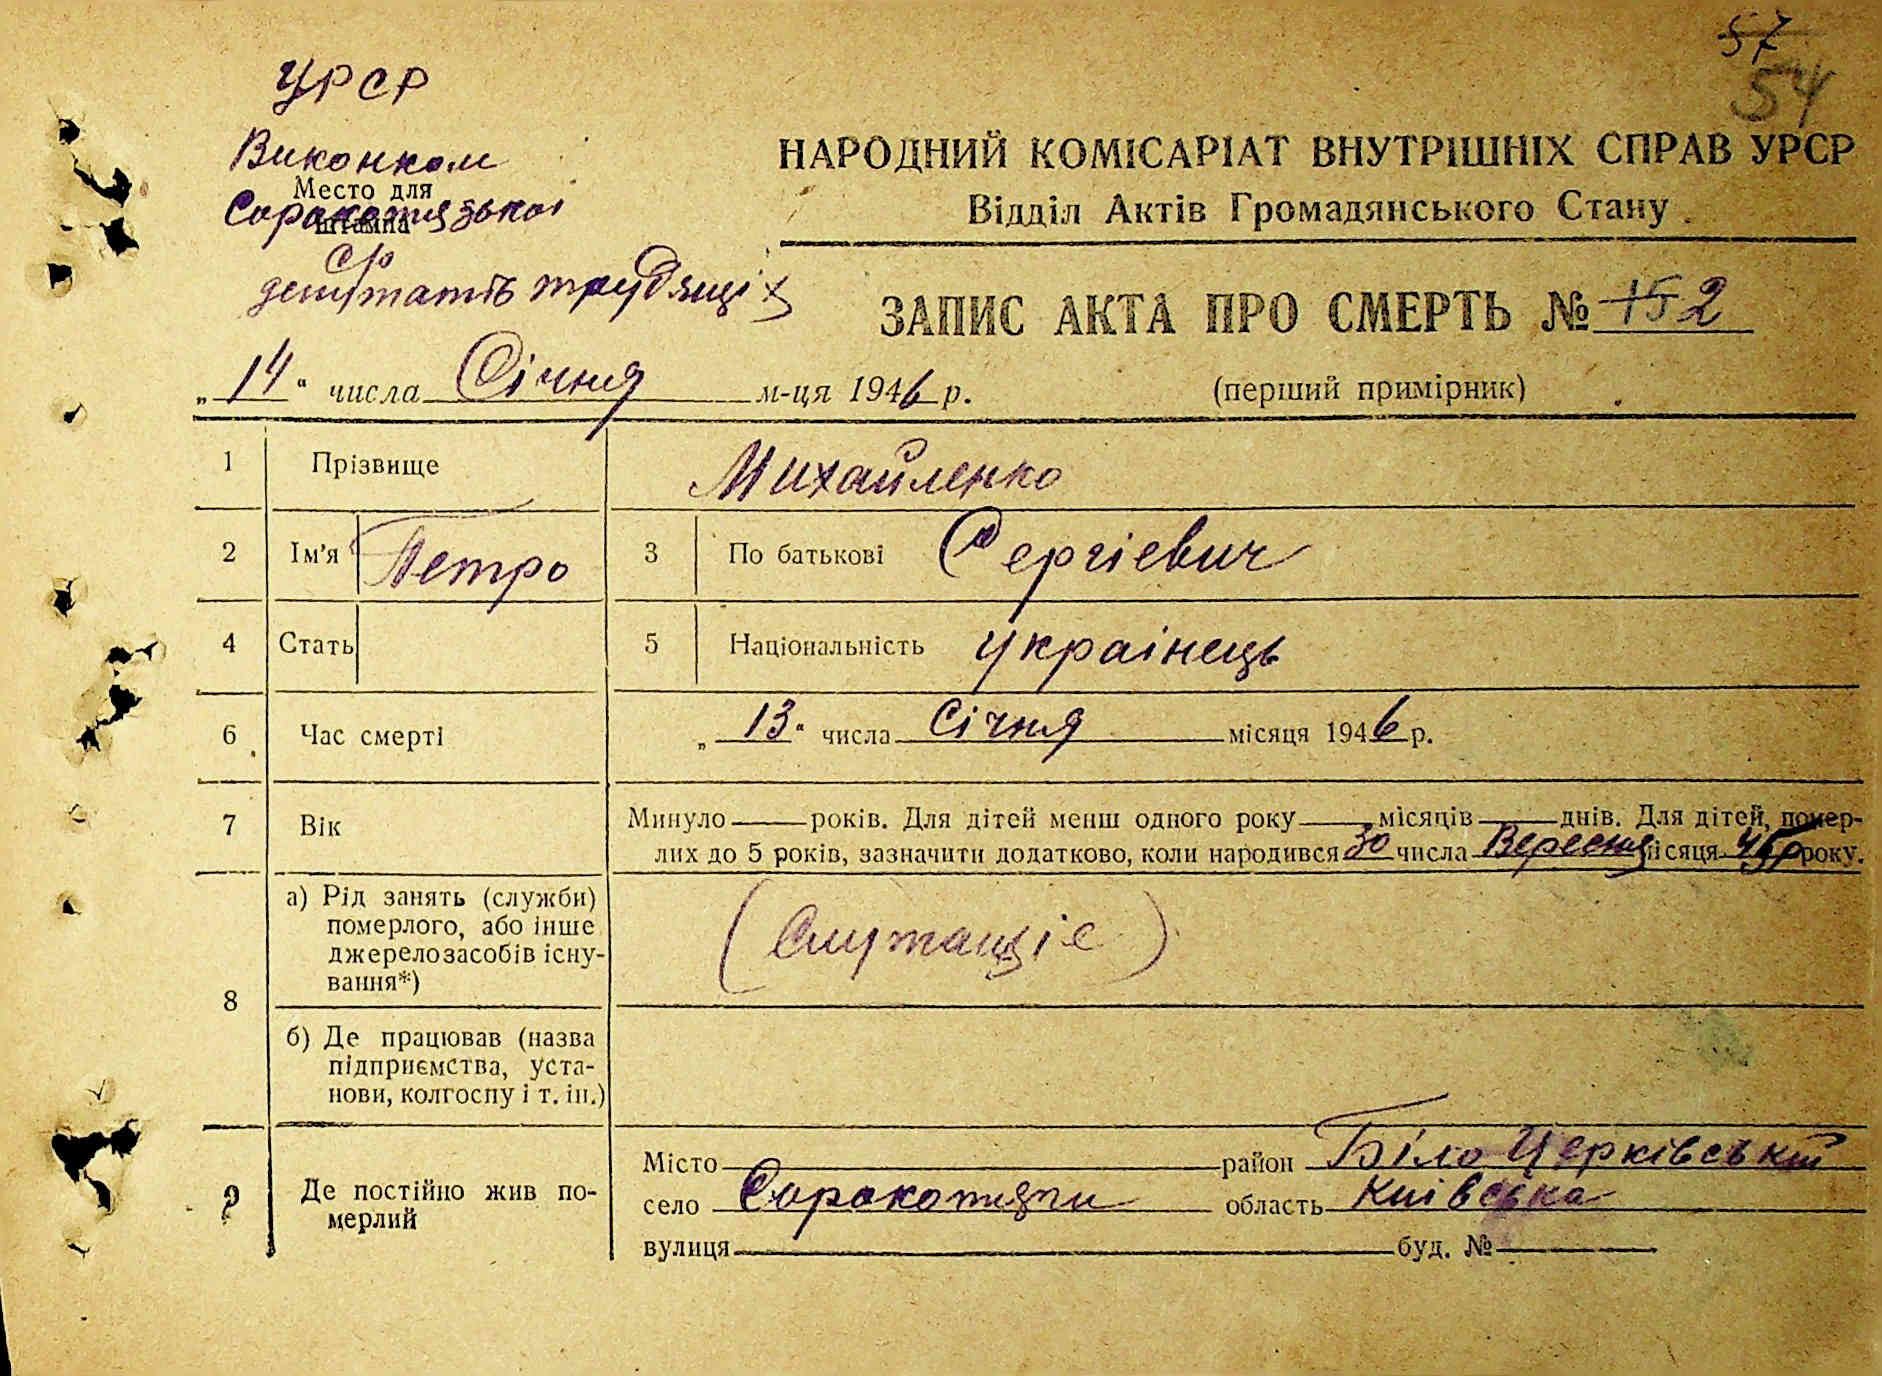 57
54
УРСР
Виконком
Место для
штампа
Сорокотязької
с/р
депутатів трудящіх
НАРОДНИЙ КОМІСАРІАТ ВНУТРІШНІХ СПРАВ УРСР
Відділ Актів Громадянського Стану
ЗАПИС АКТА ПРО СМЕРТЬ № 152
„14“ числа Січня м-ця 1946 р.
(перший примірник)
1 Прізвище Михайленко
2 Ім'я Петро 3 По батькові Сергієвич
4 Стать 5 Національність українець
6 Час смерті „13“ числа Січня місяця 1946 р.
7 Вік Минуло років. Для дітей менш одного року місяців днів. Для дітей, помер-
лих до 5 років, зазначити додатково, коли народився 30 числа Вересня місяця 45р року.
8 а) Рід занять (служби)
померлого, або інше
джерело засобів існу-
вання*)
б) Де працював (назва
підприємства, уста-
нови, колгоспу і т. ін.)
9 Де постійно жив по-
мерлий
Місто район Біло Церківський
село Сорокотяги область Київська
вулиця буд. №